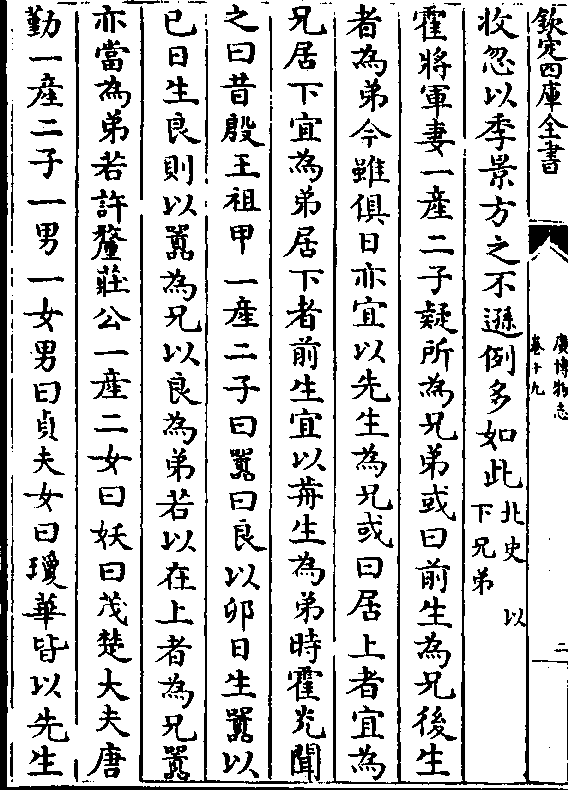 欽定四庫全書
廣博物志
卷十九
二
收忽以季景方之不遜例多如此北史 以
下兄弟
霍將軍妻一產二子疑所為兄弟或曰前生為兄後生
者為弟今雖俱日亦宜以先生為兄或曰居上者宜為
兄居下宜為弟居下者前生宜以前生為弟時霍光聞
之曰昔殷王祖甲一產二子曰嚚曰良以卯日生嚚以
巳日生良則以嚚為兄以良為弟若以在上者為兄嚚
亦當為弟若許釐莊公一產二女曰妖曰茂楚大夫唐
勤一產二子一男一女男曰貞夫女曰瓊華皆以先生